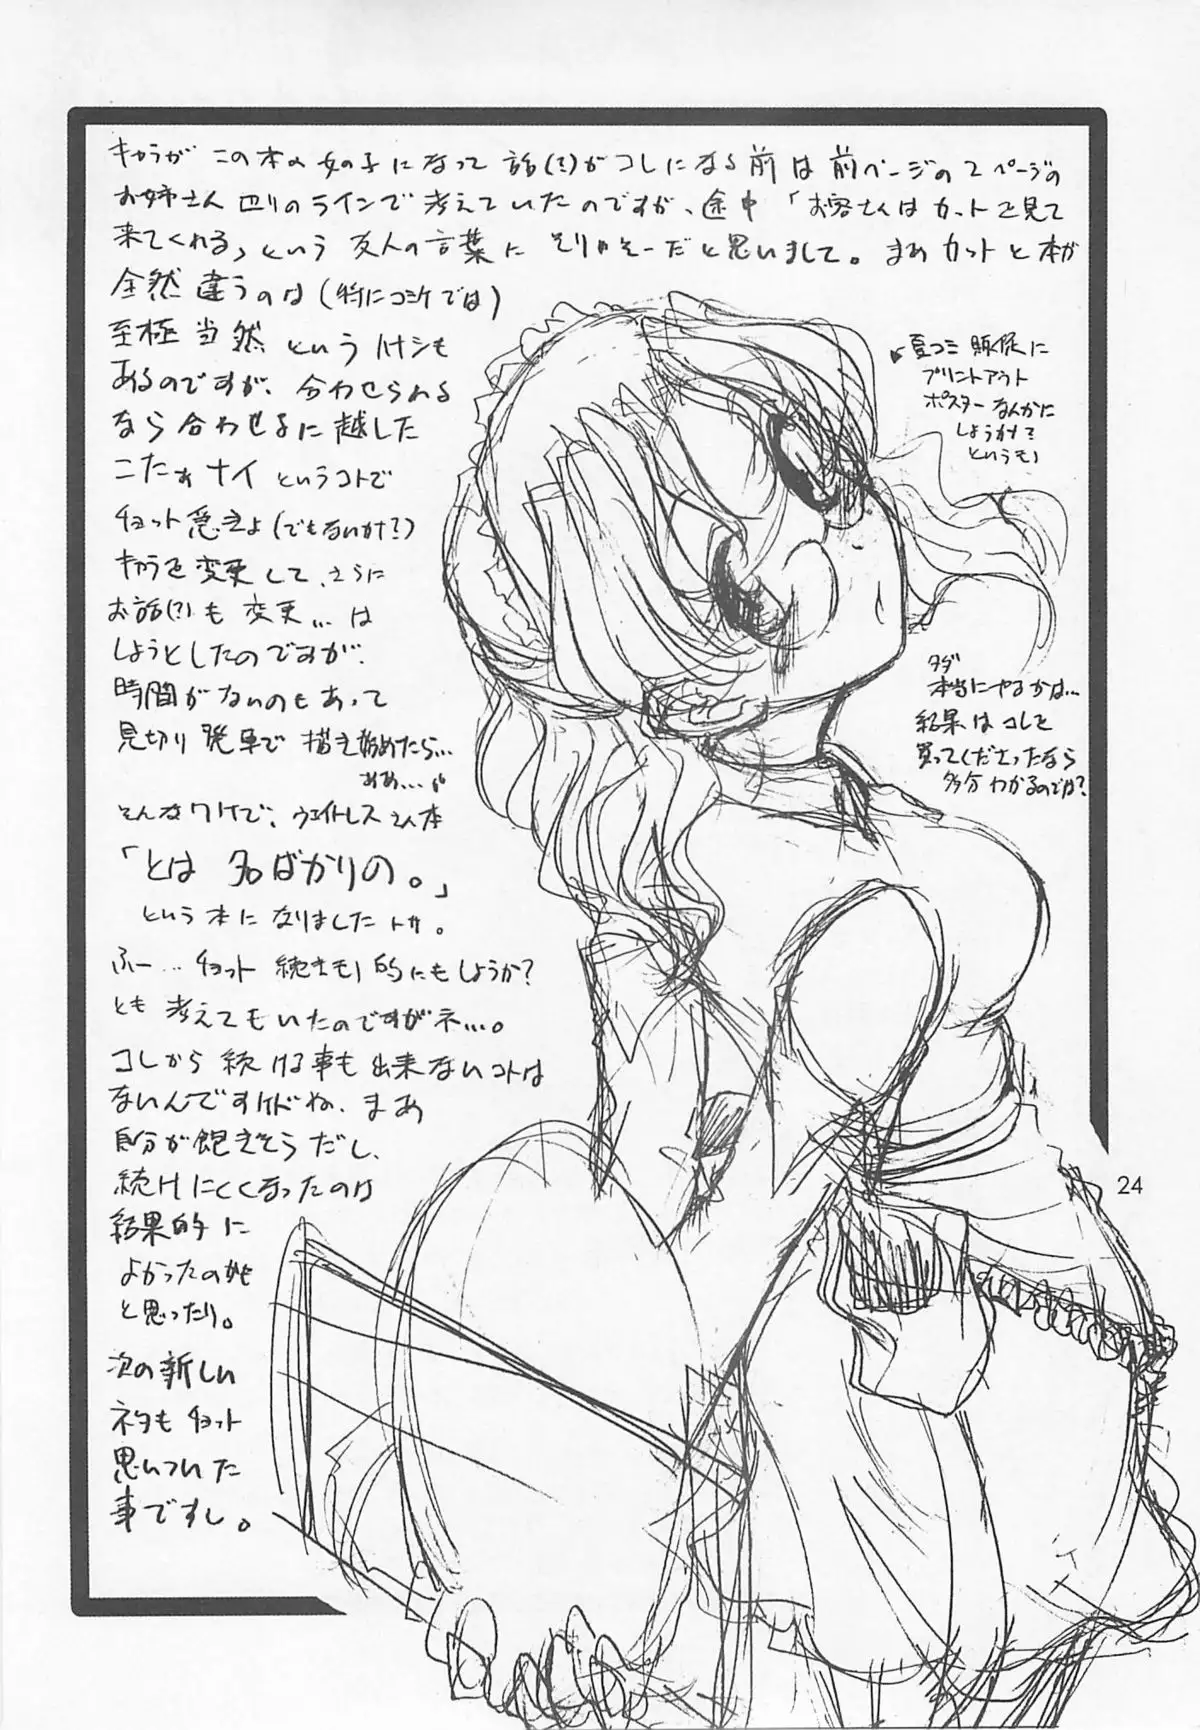 キャラが この本の女の子になって 話(?)がコレになる前は 前ページの2ページの
お姉さん辺りのラインで考えていたのですが、途中「お客さんはカットを見て
来てくれる」という 友人の言葉に そりゃそーだと思いまして。まぁカットと本が
全然違うのは(特にコミケでは)
至極当然というハナシも
あるのですが、合わせられる
なら合わせるに越した
こたぁナイ というコトで
チョット急きょ(でもないか?)
キャラを変更して、さらに
お話(?)も変更…は
しようとしたのですが、
時間がないのもあって
見切り発車で描き始めたら…
ああ….。
そんなワケで、ウェイトレスさん本
「とは 名ばかりの。」
という本になりましたトサ。
ふー…チョット続きもの的にもしようか?
とも 考えてもいたのですがネ…。
コレから続ける事も出来ないコトは
ないんですけどね、まあ
自分が飽きそうだし、
続けにくくなったのは
結果的に
よかったのかも
と思ったり。
次の新しい
ネタもチョット
思いついた
事ですし。
夏コミ販促に
プリントアウト
ポスターなんかに
しようか?
というもの
タダ
本当にやるかは…
結果はコレを
買ってくださったなら
多分わかるのでは?
24